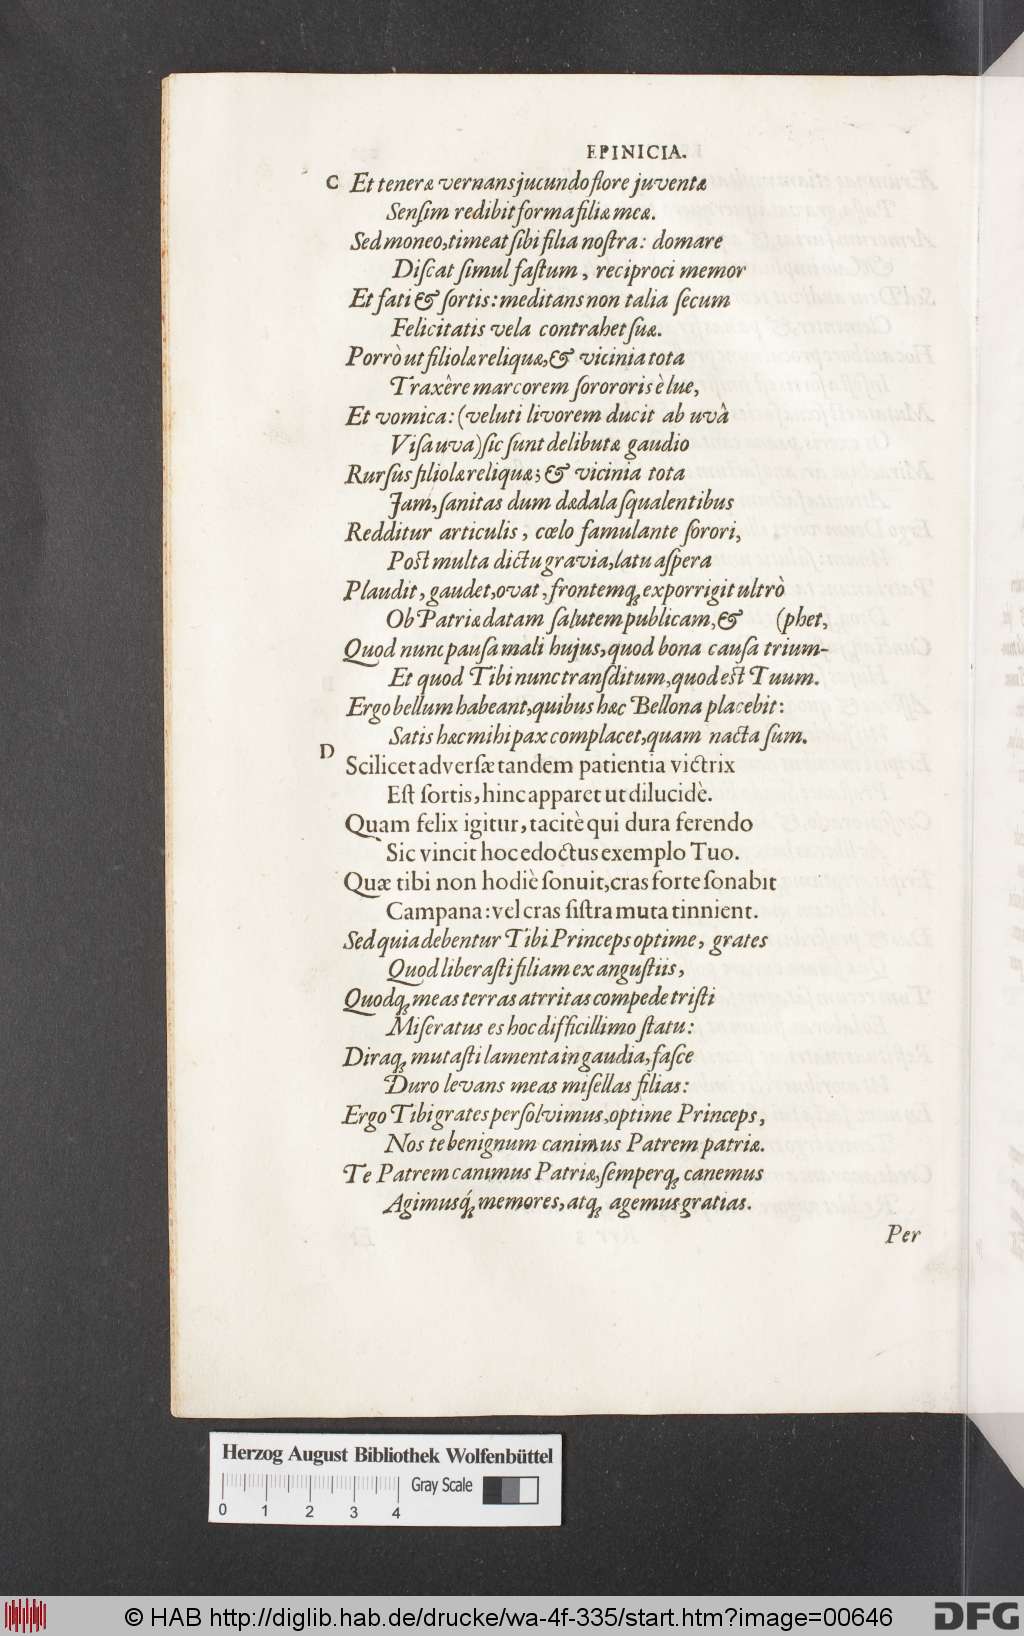 EPINICIA.
C Et teneræ vernans jucundo flore juventæ
Senſim redibit forma filiæ meæ.
Sed moneo, timeat ſibi filia noſtra: domare
Diſcat ſimul faſtum, reciproci memor
Et fati & ſortis: meditans non talia ſecum
Felicitatis vela contrahet ſuæ.
Porrò ut filiolæ reliquæ, & vicinia tota
Traxêre marcorem ſorororis è lue,
Et vomica: (veluti livorem ducit ab uvâ
Viſa uva) ſic ſunt delibutæ gaudio
Rurſus filiolæ reliquæ; & vicinia tota
Jam, ſanitas dum dædala ſqualentibus
Redditur articulis, cœlo famulante ſorori,
Poſt multa dictu gravia, latu aſpera
Plaudit, gaudet, ovat, frontemq́; exporrigit ultrò
Ob Patriæ datam ſalutem publicam, & (phet,
Quod nunc pauſa mali hujus, quod bona cauſa trium-
Et quod Tibi nunc tranſditum, quod eſt Tuum.
Ergo bellum habeant, quibus hæc Bellona placebit:
Satis hæc mihi pax complacet, quam nacta ſum.
D Scilicet adverſæ tandem patientia victrix
Eſt ſortis, hinc apparet ut dilucidè.
Quam felix igitur, tacitè qui dura ferendo
Sic vincit hoc edoctus exemplo Tuo.
Quæ tibi non hodiè ſonuit, cras forte ſonabit
Campana: vel cras ſiſtra muta tinnient.
Sed quia debentur Tibi Princeps optime, grates
Quod liberaſti filiam ex anguſtiis,
Quodq; meas terras atrritas compede triſti
Miſeratus es hoc difficillimo ſtatu:
Diraq; mutaſti lamenta in gaudia, faſce
Duro levans meas miſellas filias:
Ergo Tibi grates perſolvimus, optime Princeps,
Nos te benignum canimus Patrem patriæ.
Te Patrem canimus Patriæ, ſemperq; canemus
Agimusq́; memores, atq; agemus gratias.
Per
Herzog August Bibliothek Wolfenbüttel
Gray Scale
0 1 2 3 4
© HAB http://diglib.hab.de/drucke/wa-4f-335/start.htm?image=00646
DFG